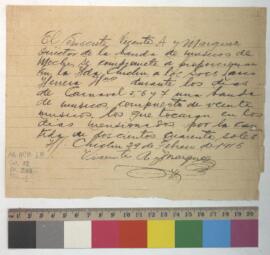 El Suscrito Vicente A. y Marquez
Director de la banda de musicos de
Moche se compromete a proporcionar
en la Hda Chiclin a los Sres Larco
Herrera Hnos durante los dias
de Carnaval 5, 6 y 7 una banda
de musicos compuesta de veinte
musicos, los que tocaran en los
dias mencionados por la can-
tida de doscientos cuarenta soles
Chiclin 29 de Febrero de 1916
Vicente A. y Marquez